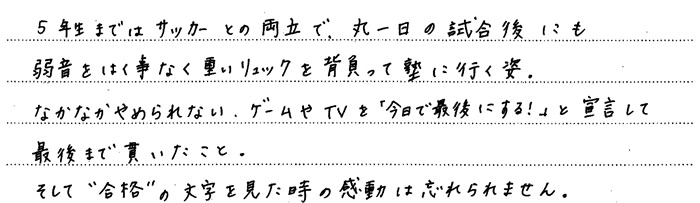 5年生まではサッカーとの両立で、丸一日の試合後にも
弱音をはく事なく重いリュックを背負って塾に行く姿。
なかなかやめられない、ゲームやTVを「今日で最後にする!」と宣言して
最後まで貫いたこと。
そして"合格"の文字を見た時の感動は忘れられません。